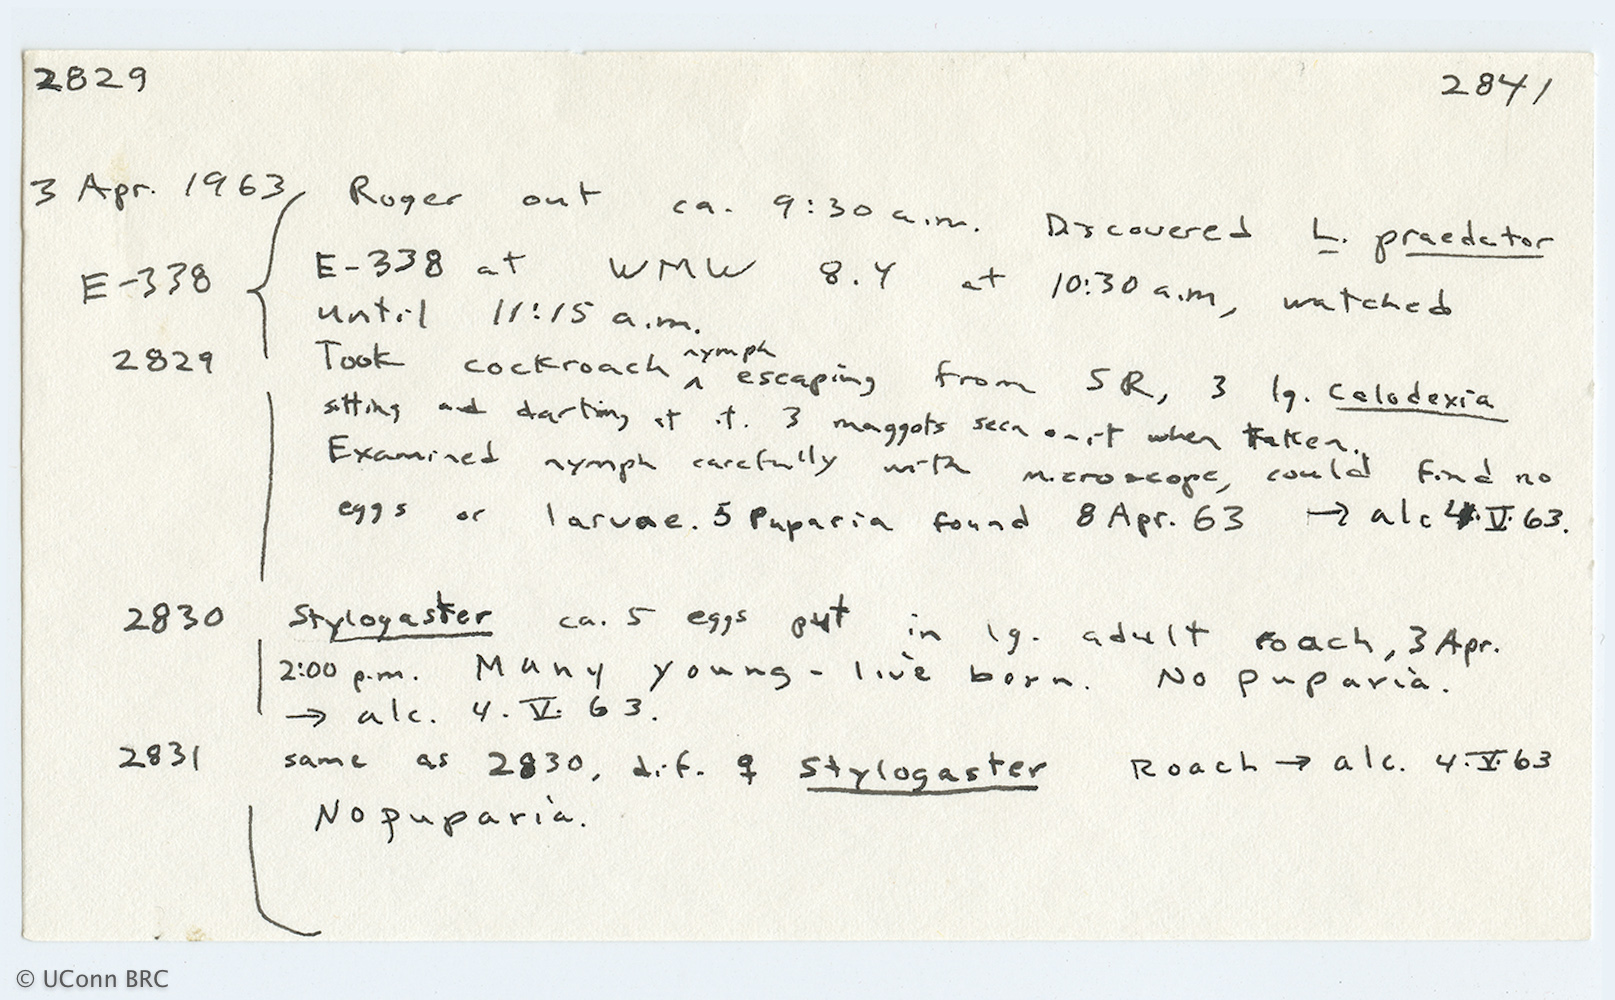 2829 2841
3 Apr. 1963 Roger out ca. 9:30 a.m. Discovered L. praedator
E-338 E-338 at WMW 8.4 at 10:30 a.m, watched
until 11:15 a.m.
2829 Took cockroach ^nymph escaping from SR, 3 lg. Calodexia
sitting and darting at it. 3 maggots seen on it when taken.
Examined nymph carefully with microscope, could find no
eggs or larvae. 5 Puparia found 8 Apr. 63 → alc 4.V.63.
2830 Stylogaster ca. 5 eggs put in lg. adult roach, 3 Apr.
2:00 p.m. Many young - live born. No puparia.
→ alc. 4.V.63.
2831 same as 2830, dif. ♀ Stylogaster Roach → alc. 4.V.63
No puparia.
© UConn BRC